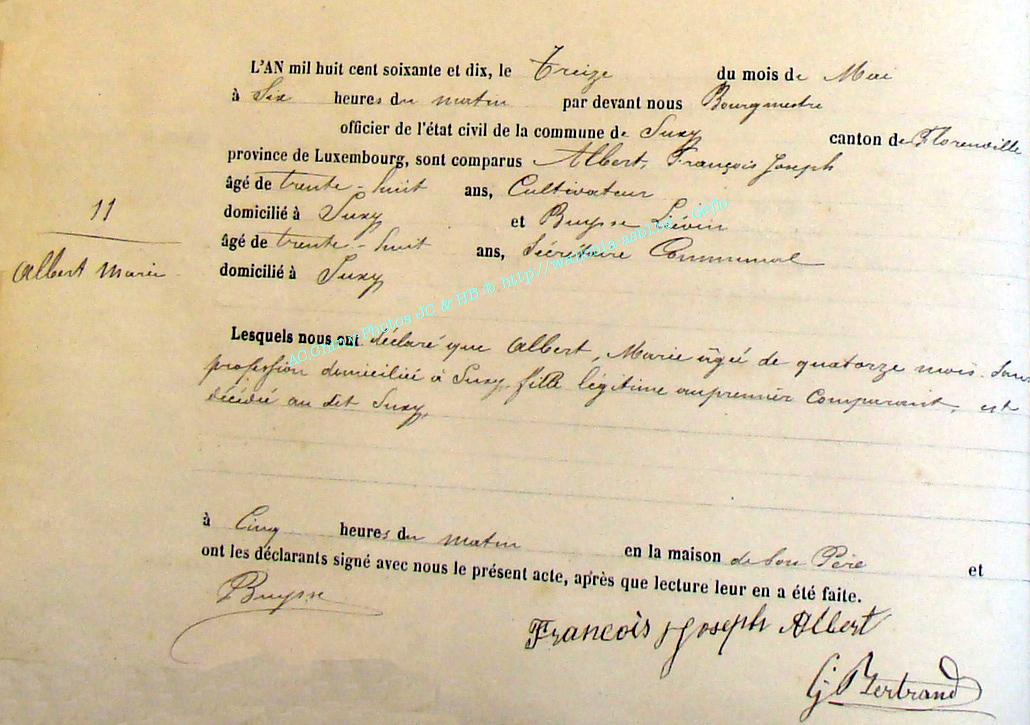 L'AN mil huit cent soixante et dix, le Treize du mois de Mai
à Six heures du matin par devant nous Bourgmestre
officier de l'état civil de la commune de Suxy canton de Florenville
province de Luxembourg, sont comparus Albert, François Joseph
âgé de trente-huit ans, Cultivateur
domicilié à Suxy et Buysse Liévin
âgé de trente-huit ans, Sécrétaire Communal
domicilié à Suxy
11
Albert Marie
Lesquels nous ont déclaré que Albert, Marie âgée de quatorze mois, sans
profession domiciliée à Suxy, fille légitime au premier Comparant, est
décédée au dit Suxy,
à Cinq heures du matin en la maison de son Père et
ont les déclarants signé avec nous le présent acte, après que lecture leur en a été faite.
Buysse
François Joseph Albert
G Bertrand
AC Chiny Photos JC & HB © http://